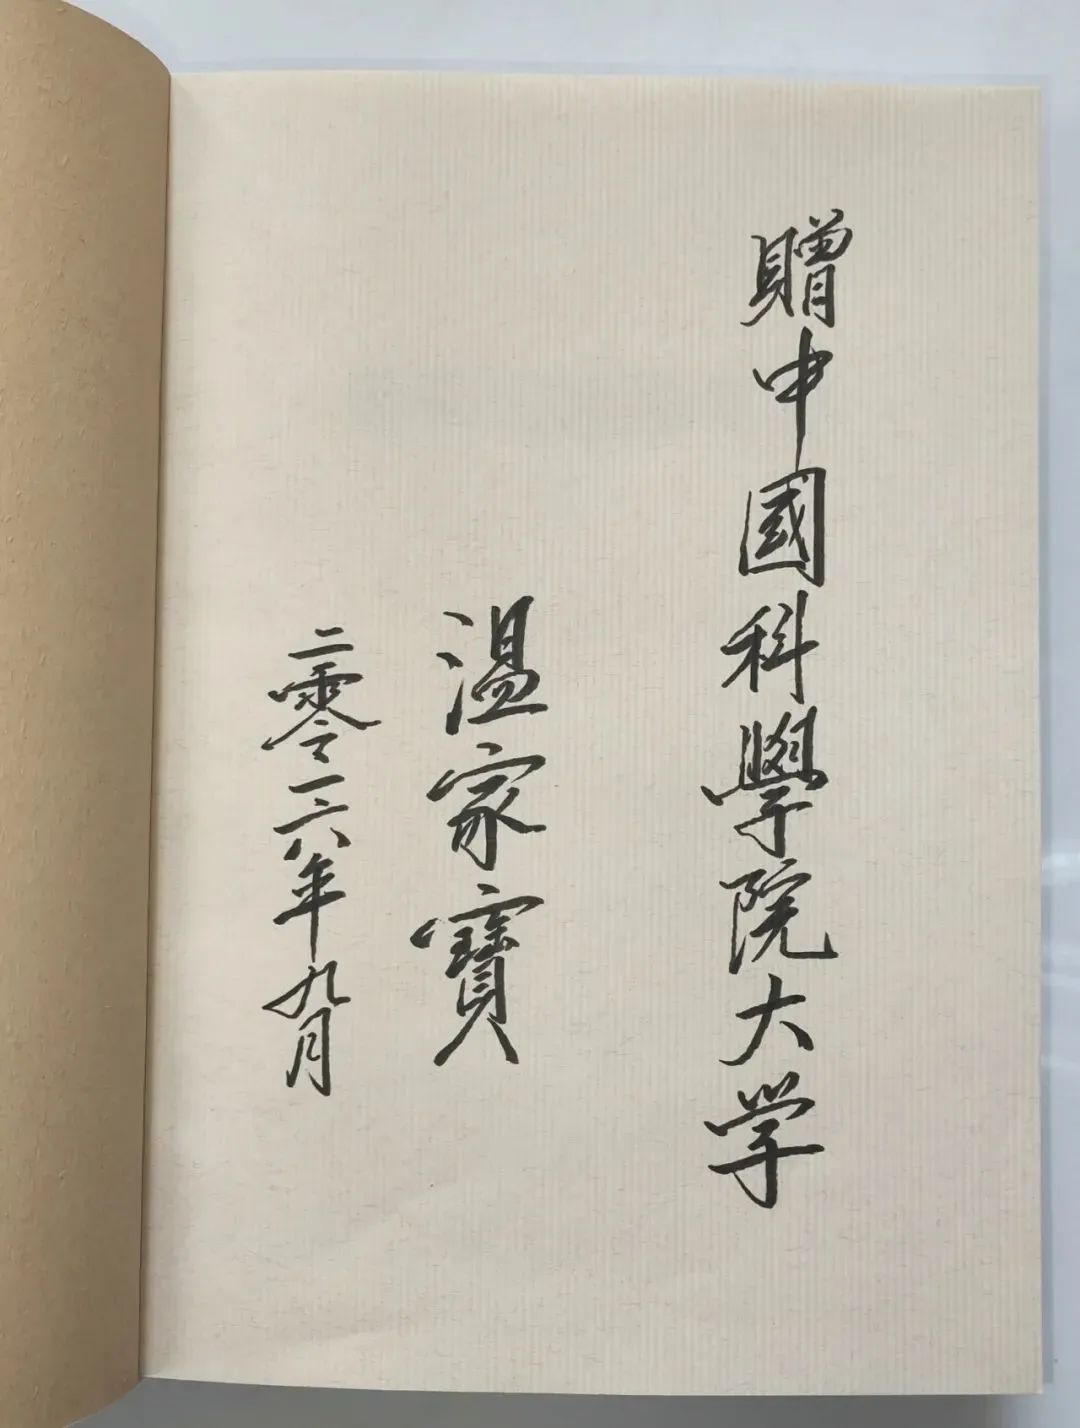 贈中國科學院大学
温家寶
二零一六年九月